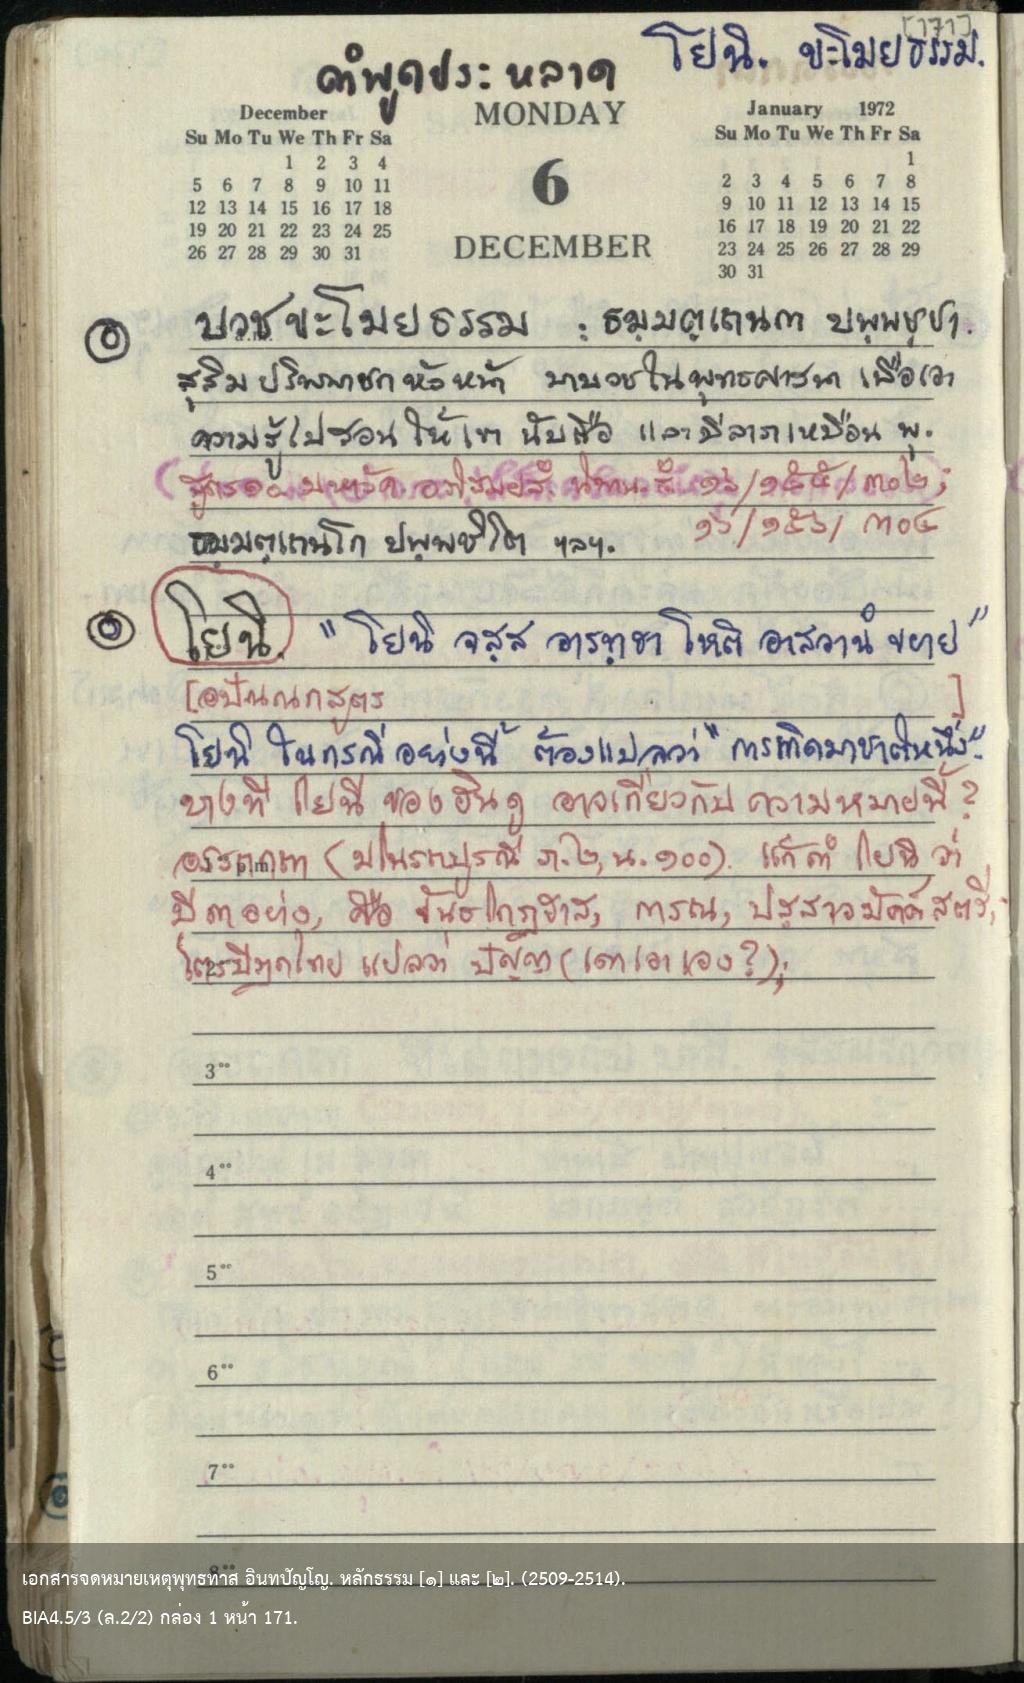 [171]
คำพูดประหลาด โยนิ. ขะโมยธรรม.
December
Su Mo Tu We Th Fr Sa
1 2 3 4
5 6 7 8 9 10 11
12 13 14 15 16 17 18
19 20 21 22 23 24 25
26 27 28 29 30 31
MONDAY
6
DECEMBER
January 1972
Su Mo Tu We Th Fr Sa
1
2 3 4 5 6 7 8
9 10 11 12 13 14 15
16 17 18 19 20 21 22
23 24 25 26 27 28 29
30 31
บวชขะโมยธรรม : ธมฺมตฺเถนกา ปพฺพชฺชา.
สุสิมปริพพาชกหัวหน้า มาบวชในพุทธศาสนา เพื่อเอา
ความรู้ไปสอนให้เขานับถือ และมีลาภเหมือน พุ.
สูตร๑๐ มหาวัค อภิสมยสํ. นิทาน. สํ. ๑๖/๑๕๕/๓๐๒;
ธมฺมตฺเถนโก ปพฺพชิโต ฯลฯ. ๑๖/๑๕๖/๓๐๔
โยนิ. "โยนิ จสฺส อารทฺธา โหติ อาสวานํ ขยาย"
[อปัณณกสูตร ]
โยนิ ในกรณีอย่างนี้ ต้องแปลว่า "การเกิดมาชาติหนึ่ง".
บางที โยนี ของฮินดู อาจเกี่ยวกับ ความหมายนี้?
อรรถกถา (มโนรถปูรณี ภ.๒, น.๑๐๐). แก้คำ โยนิ ว่า
มี ๓ อย่าง, คือ ขันธโกฏฐาส, การณ, ปสฺสาวมัคค์สตรี,
ไตรปิฎกไทย แปลว่า ปัญญา (เดาเอาเอง?);
3⁰⁰
4⁰⁰
5⁰⁰
6⁰⁰
7⁰⁰
8⁰⁰
เอกสารจดหมายเหตุพุทธทาส อินทปัญโญ. หลักธรรม [๑] และ [๒]. (2509-2514).
BIA4.5/3 (ล.2/2) กล่อง 1 หน้า 171.